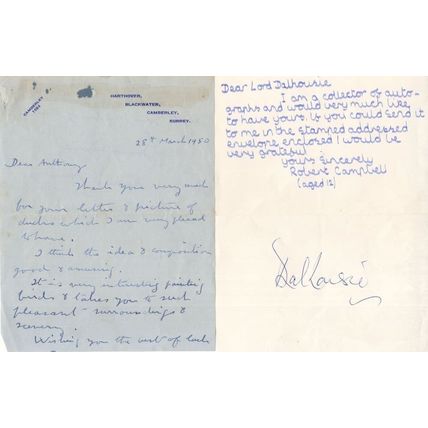 CAMBERLEY
HARTHOVER,
BLACKWATER,
CAMBERLEY,
SURREY.
28th March 1950
Dear Anthony
Thank you very much
for your letter & picture of
ducks which I am very pleased
to have.
I think the idea & composition
good & amusing.
It is very interesting painting
birds & takes you to such
pleasant surroundings &
scenery.
Wishing you the best of luck
Dear Lord Dalhousie
I am a collector of auto-
graphs and would very much like
to have yours. If you could send it
to me in the stamped addressed
envelope enclosed I would be
very grateful
yours Sincerely
Robert Campbell
(aged 12)
Dalhousie